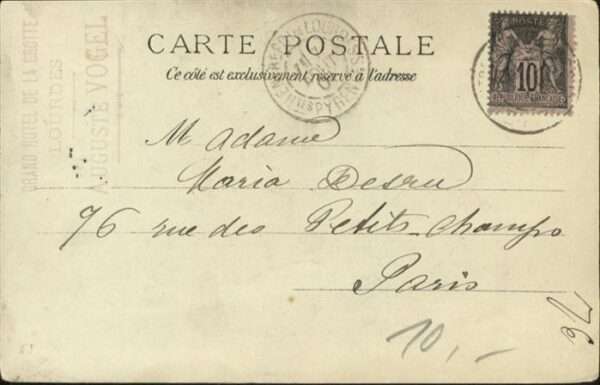 CARTE POSTALE
Ce côté est exclusivement réservé à l'adresse
POSTE
10
RÉPUBLIQUE FRANÇAISE
GRAND HOTEL DE LA GROTTE
LOURDES
AUGUSTE VOGEL
Madame
Maria
76 rue des Petits-Champs
Paris
10,-